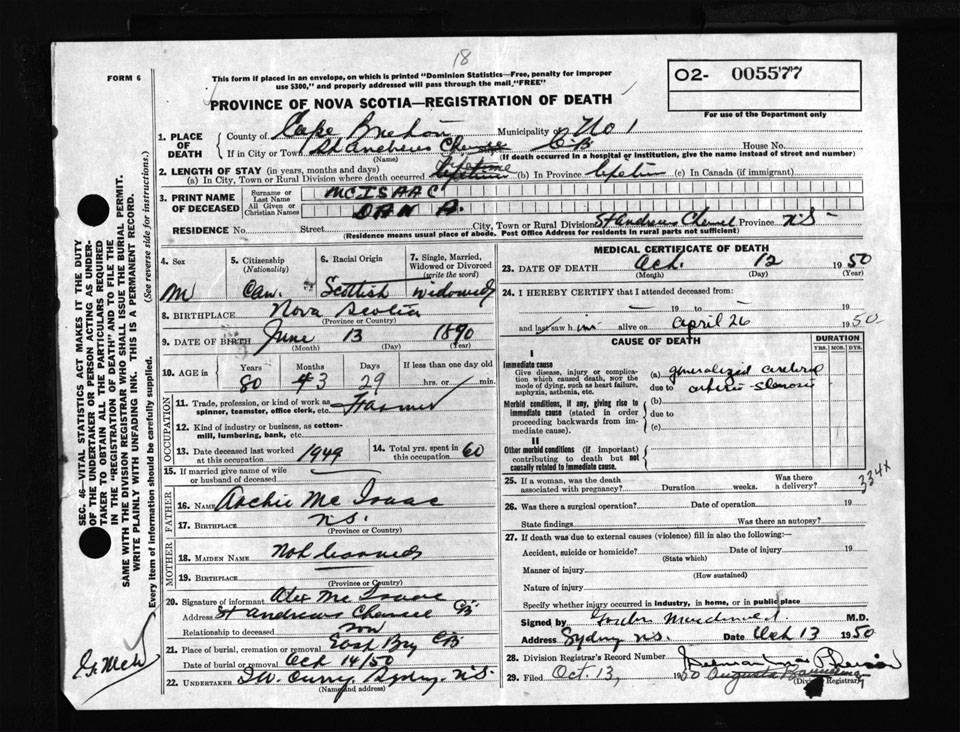 18
FORM 6
This form if placed in an envelope, on which is printed "Dominion Statistics—Free, penalty for improper
use $300," and properly addressed will pass through the mail "FREE"
O2- 005577
For use of the Department only
PROVINCE OF NOVA SCOTIA—REGISTRATION OF DEATH
1. PLACE OF DEATH
County of Cape Breton Municipality of No 1
If in City or Town St Andrews C.B. House No.
(Name) (If death occurred in a hospital or institution, give the name instead of street and number)
2. LENGTH OF STAY (in years, months and days)
(a) In City, Town or Rural Division where death occurred lifetime (b) In Province lifetime (c) In Canada (if immigrant)
3. PRINT NAME OF DECEASED
Surname or Last Name MCISAAC
All Given or Christian Names DAN A.
RESIDENCE No. Street City, Town or Rural Division St Andrews Channel Province N.S-
(Residence means usual place of abode. Post Office Address for residents in rural parts not sufficient)
4. Sex M
5. Citizenship (Nationality) Can.
6. Racial Origin Scottish
7. Single, Married, Widowed or Divorced (write the word) widowed
8. BIRTHPLACE Nova Scotia
(Province or Country)
9. DATE OF BIRTH June 13 1890
(Month) (Day) (Year)
10. AGE in Years Months Days If less than one day old
80 3 29 hrs. or min.
OCCUPATION
11. Trade, profession or kind of work as spinner, teamster, office clerk, etc. Farmer
12. Kind of industry or business, as cotton-mill, lumbering, bank, etc.
13. Date deceased last worked at this occupation 1949
14. Total yrs. spent in this occupation 60
15. If married give name of wife or husband of deceased
FATHER
16. NAME Archie Mc Isaac
17. BIRTHPLACE N.S.
(Province or Country)
MOTHER
18. MAIDEN NAME Not learned
19. BIRTHPLACE
(Province or Country)
20. Signature of informant Alex Mc Isaac
Address St Andrews CB
Relationship to deceased son
21. Place of burial, cremation or removal Bay CB
Date of burial or removal Oct 14/50
22. UNDERTAKER Curry, Sydney, N.S.
(Name and address)
MEDICAL CERTIFICATE OF DEATH
23. DATE OF DEATH Oct. 12 1950
(Month) (Day) (Year)
24. I HEREBY CERTIFY that I attended deceased from:
— 19 to — 19
and last saw him alive on April 26 1950
CAUSE OF DEATH
DURATION
YRS. MOS. DYS.
I
Immediate cause
Give disease, injury or complication which caused death, NOT the mode of dying, such as heart failure, asphyxia, asthenia, etc.
(a) generalized cerebral
due to arterio sclerosis
Morbid conditions, if any, giving rise to immediate cause (stated in order proceeding backwards from immediate cause).
(b)
due to
(c)
II
Other morbid conditions (if important) contributing to death but not causally related to immediate cause.
334x
25. If a woman, was the death associated with pregnancy? Duration weeks. Was there a delivery?
26. Was there a surgical operation? Date of operation 19
State findings Was there an autopsy?
27. If death was due to external causes (violence) fill in also the following:—
Accident, suicide or homicide? Date of injury 19
(State which)
Manner of injury
(How sustained)
Nature of injury
Specify whether injury occurred in industry, in home, or in public place
Signed by M.D.
Address Sydney N.S. Date Oct 13 1950
28. Division Registrar's Record Number
29. Filed Oct. 13, 1950 Augusta
(Division Registrar)
SEC. 46—VITAL STATISTICS ACT MAKES IT THE DUTY
OF THE UNDERTAKER OR PERSON ACTING AS UNDER-
TAKER TO OBTAIN ALL THE PARTICULARS REQUIRED
IN THE "REGISTRATION OF DEATH" AND TO FILE THE
SAME WITH THE DIVISION REGISTRAR WHO SHALL ISSUE THE BURIAL PERMIT.
WRITE PLAINLY WITH UNFADING INK. THIS IS A PERMANENT RECORD.
Every item of information should be carefully supplied. (See reverse side for instructions.)